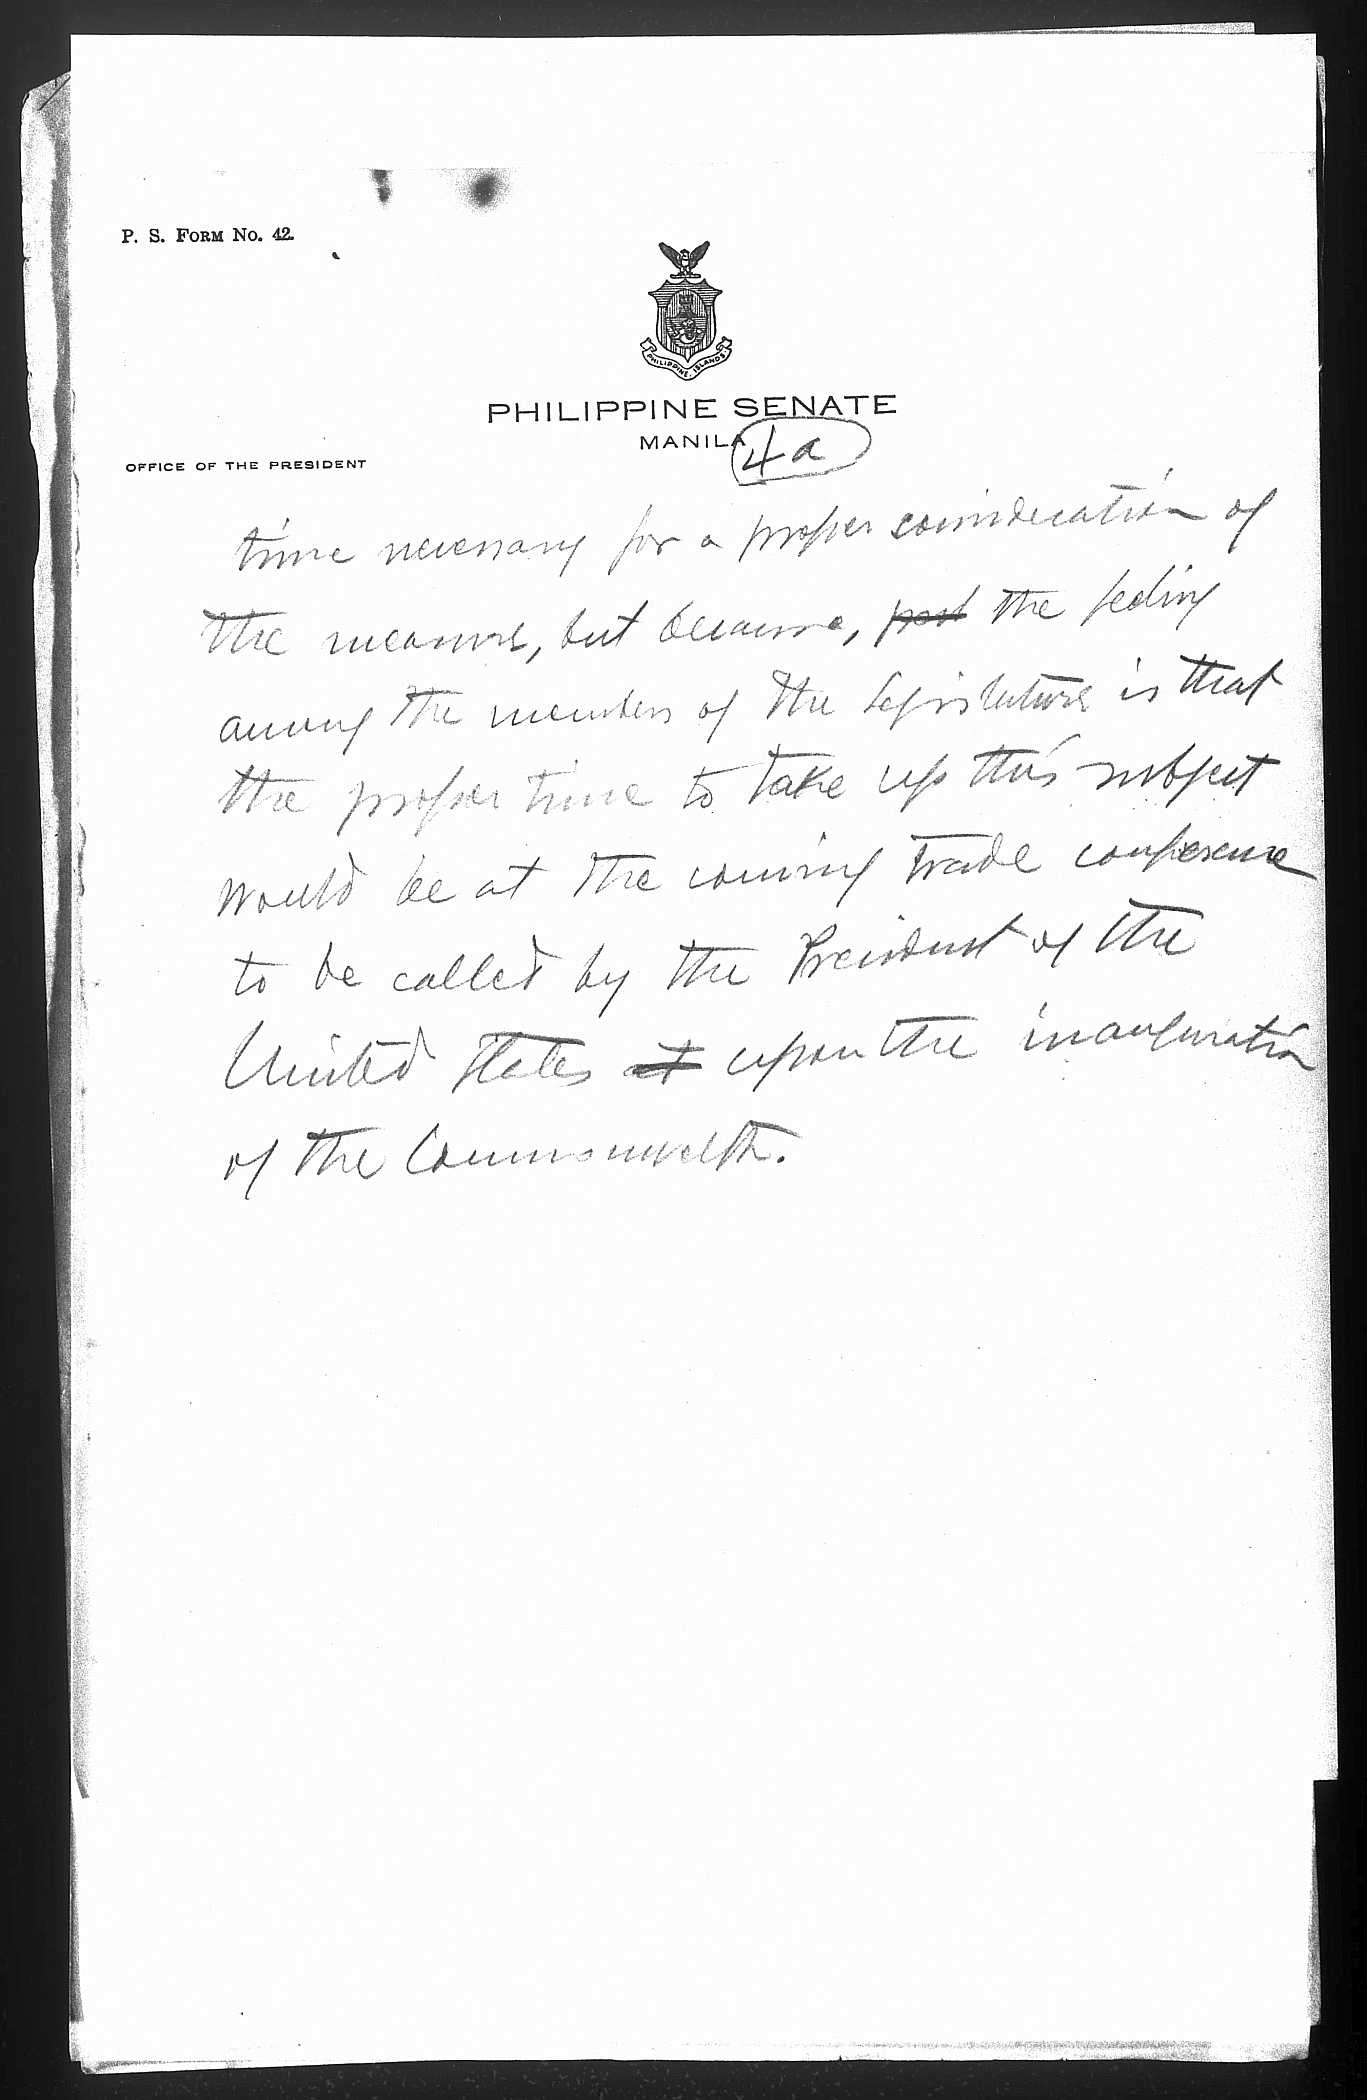 P. S. FORM No. 42.
PHILIPPINE ISLANDS
PHILIPPINE SENATE
MANILA
4a
OFFICE OF THE PRESIDENT
time necessary for a proper consideration of
the measure, but because, the feeling
among the members of the Legislature is that
the proper time to take up this subject
would be at the coming trade conference
to be called by the President of the
United States at upon the inauguration
of the Commonwealth.